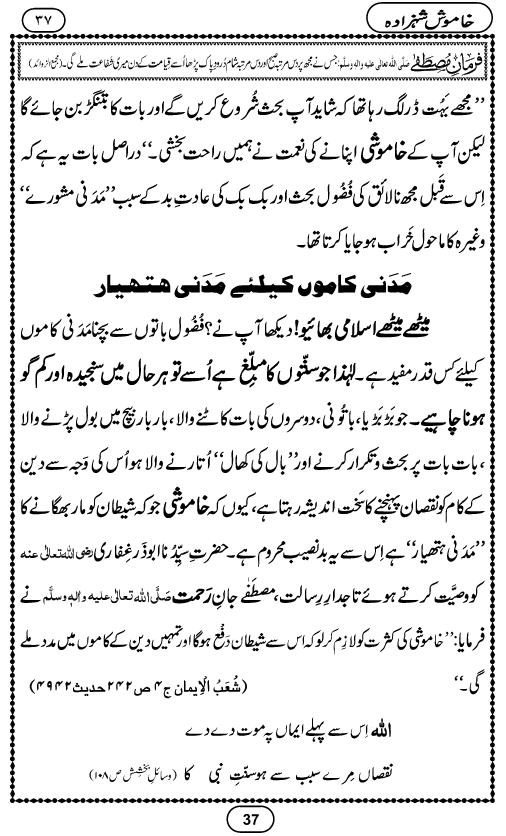 خاموش شہزادہ
۳۷
فرمانِ مُصطَفٰے صَلَّی اللہ تعالٰی علیہ واٰلہٖ وسلَّم: جس نے مجھ پر دس مرتبہ صبح اور دس مرتبہ شام دُرُودِ پاک پڑھا اُسے قیامت کے دن میری شفاعت ملے گی۔ (مجمع الزوائد)
’’مجھے بَہُت ڈر لگ رہا تھا کہ شاید آپ بحث شُروع کریں گے اور بات کا بَتَنگڑ بن جائے گا
لیکن آپ کے خاموشی اپنانے کی نعمت نے ہمیں راحت بخشی۔‘‘ دراصل بات یہ ہے کہ
اِس سے قَبل مجھ نالائق کی فُضُول بحث اور بک بک کی عادتِ بد کے سبب ’’مَدَنی مشورے‘‘
وغیرہ کا ماحول خَراب ہو جایا کرتا تھا۔
مَدَنی کاموں کیلئے مَدَنی ہتھیار
میٹھے میٹھے اسلامی بھائیو! دیکھا آپ نے؟ فُضُول باتوں سے بچنا مَدَنی کاموں
کیلئے کس قَدر مفید ہے۔ لہٰذا جو سنّتوں کا مبلّغ ہے اُسے تو ہر حال میں سنجیدہ اور کم گو
ہونا چاہیے۔ جو بَڑبَڑیا، باتُونی، دوسروں کی بات کاٹنے والا، بار بار بیچ میں بول پڑنے والا
، بات بات پر بحث و تکرار کرنے اور ’’بال کی کھال‘‘ اُتارنے والا ہو اُس کی وَجہ سے دین
کے کام کو نقصان پہنچنے کا سَخْت اندیشہ رہتا ہے، کیوں کہ خاموشی جو کہ شیطان کو مار بھگانے کا
’’مَدَنی ہتھیار‘‘ ہے اِس سے یہ بدنصیب محروم ہے۔ حضرتِ سیِّدُنا ابوذَر غِفاری رضی اللہ تعالٰی عنہ
کو وصیَّت کرتے ہوئے تاجدارِ رسالت، مصطَفٰے جانِ رَحمت صَلَّی اللہ تعالٰی علیہ واٰلہٖ وسلَّم نے
فرمایا: ’’خاموشی کی کثرت کو لازِم کر لو کہ اس سے شیطان دَفْع ہوگا اور تمہیں دین کے کاموں میں مدد ملے
گی۔‘‘ (شُعَبُ الْاِیمان ج۴ ص۲۴۲ حدیث ۴۹۴۲)
اللہ اِس سے پہلے ایماں پہ موت دے دے
نقصاں مِرے سبب سے ہو سنّتِ نبی کا (وسائلِ بخشش ص۱۰۸)
37